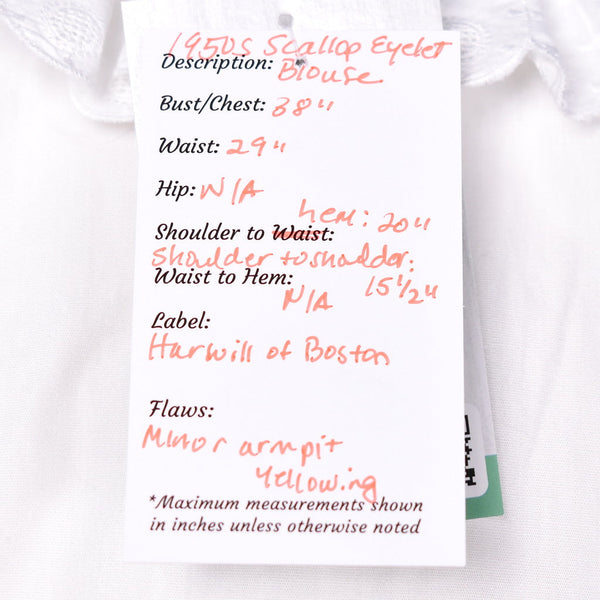 1950s Scallop Eyelet
Description: Blouse
Bust/Chest: 38"
Waist: 29"
Hip: N/A
hem: 20"
Shoulder to Waist:
Shoulder to shoulder:
15 1/2"
Waist to Hem:
N/A
Label:
Harwill of Boston
Flaws:
Minor armpit
Yellowing
*Maximum measurements shown
in inches unless otherwise noted